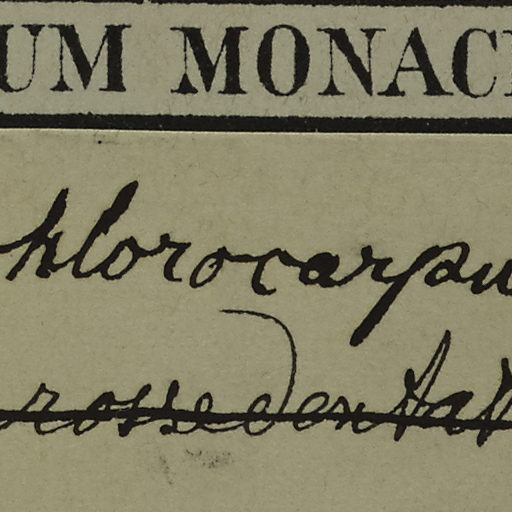 UM MONAC
hlorocarpu
rossedentat